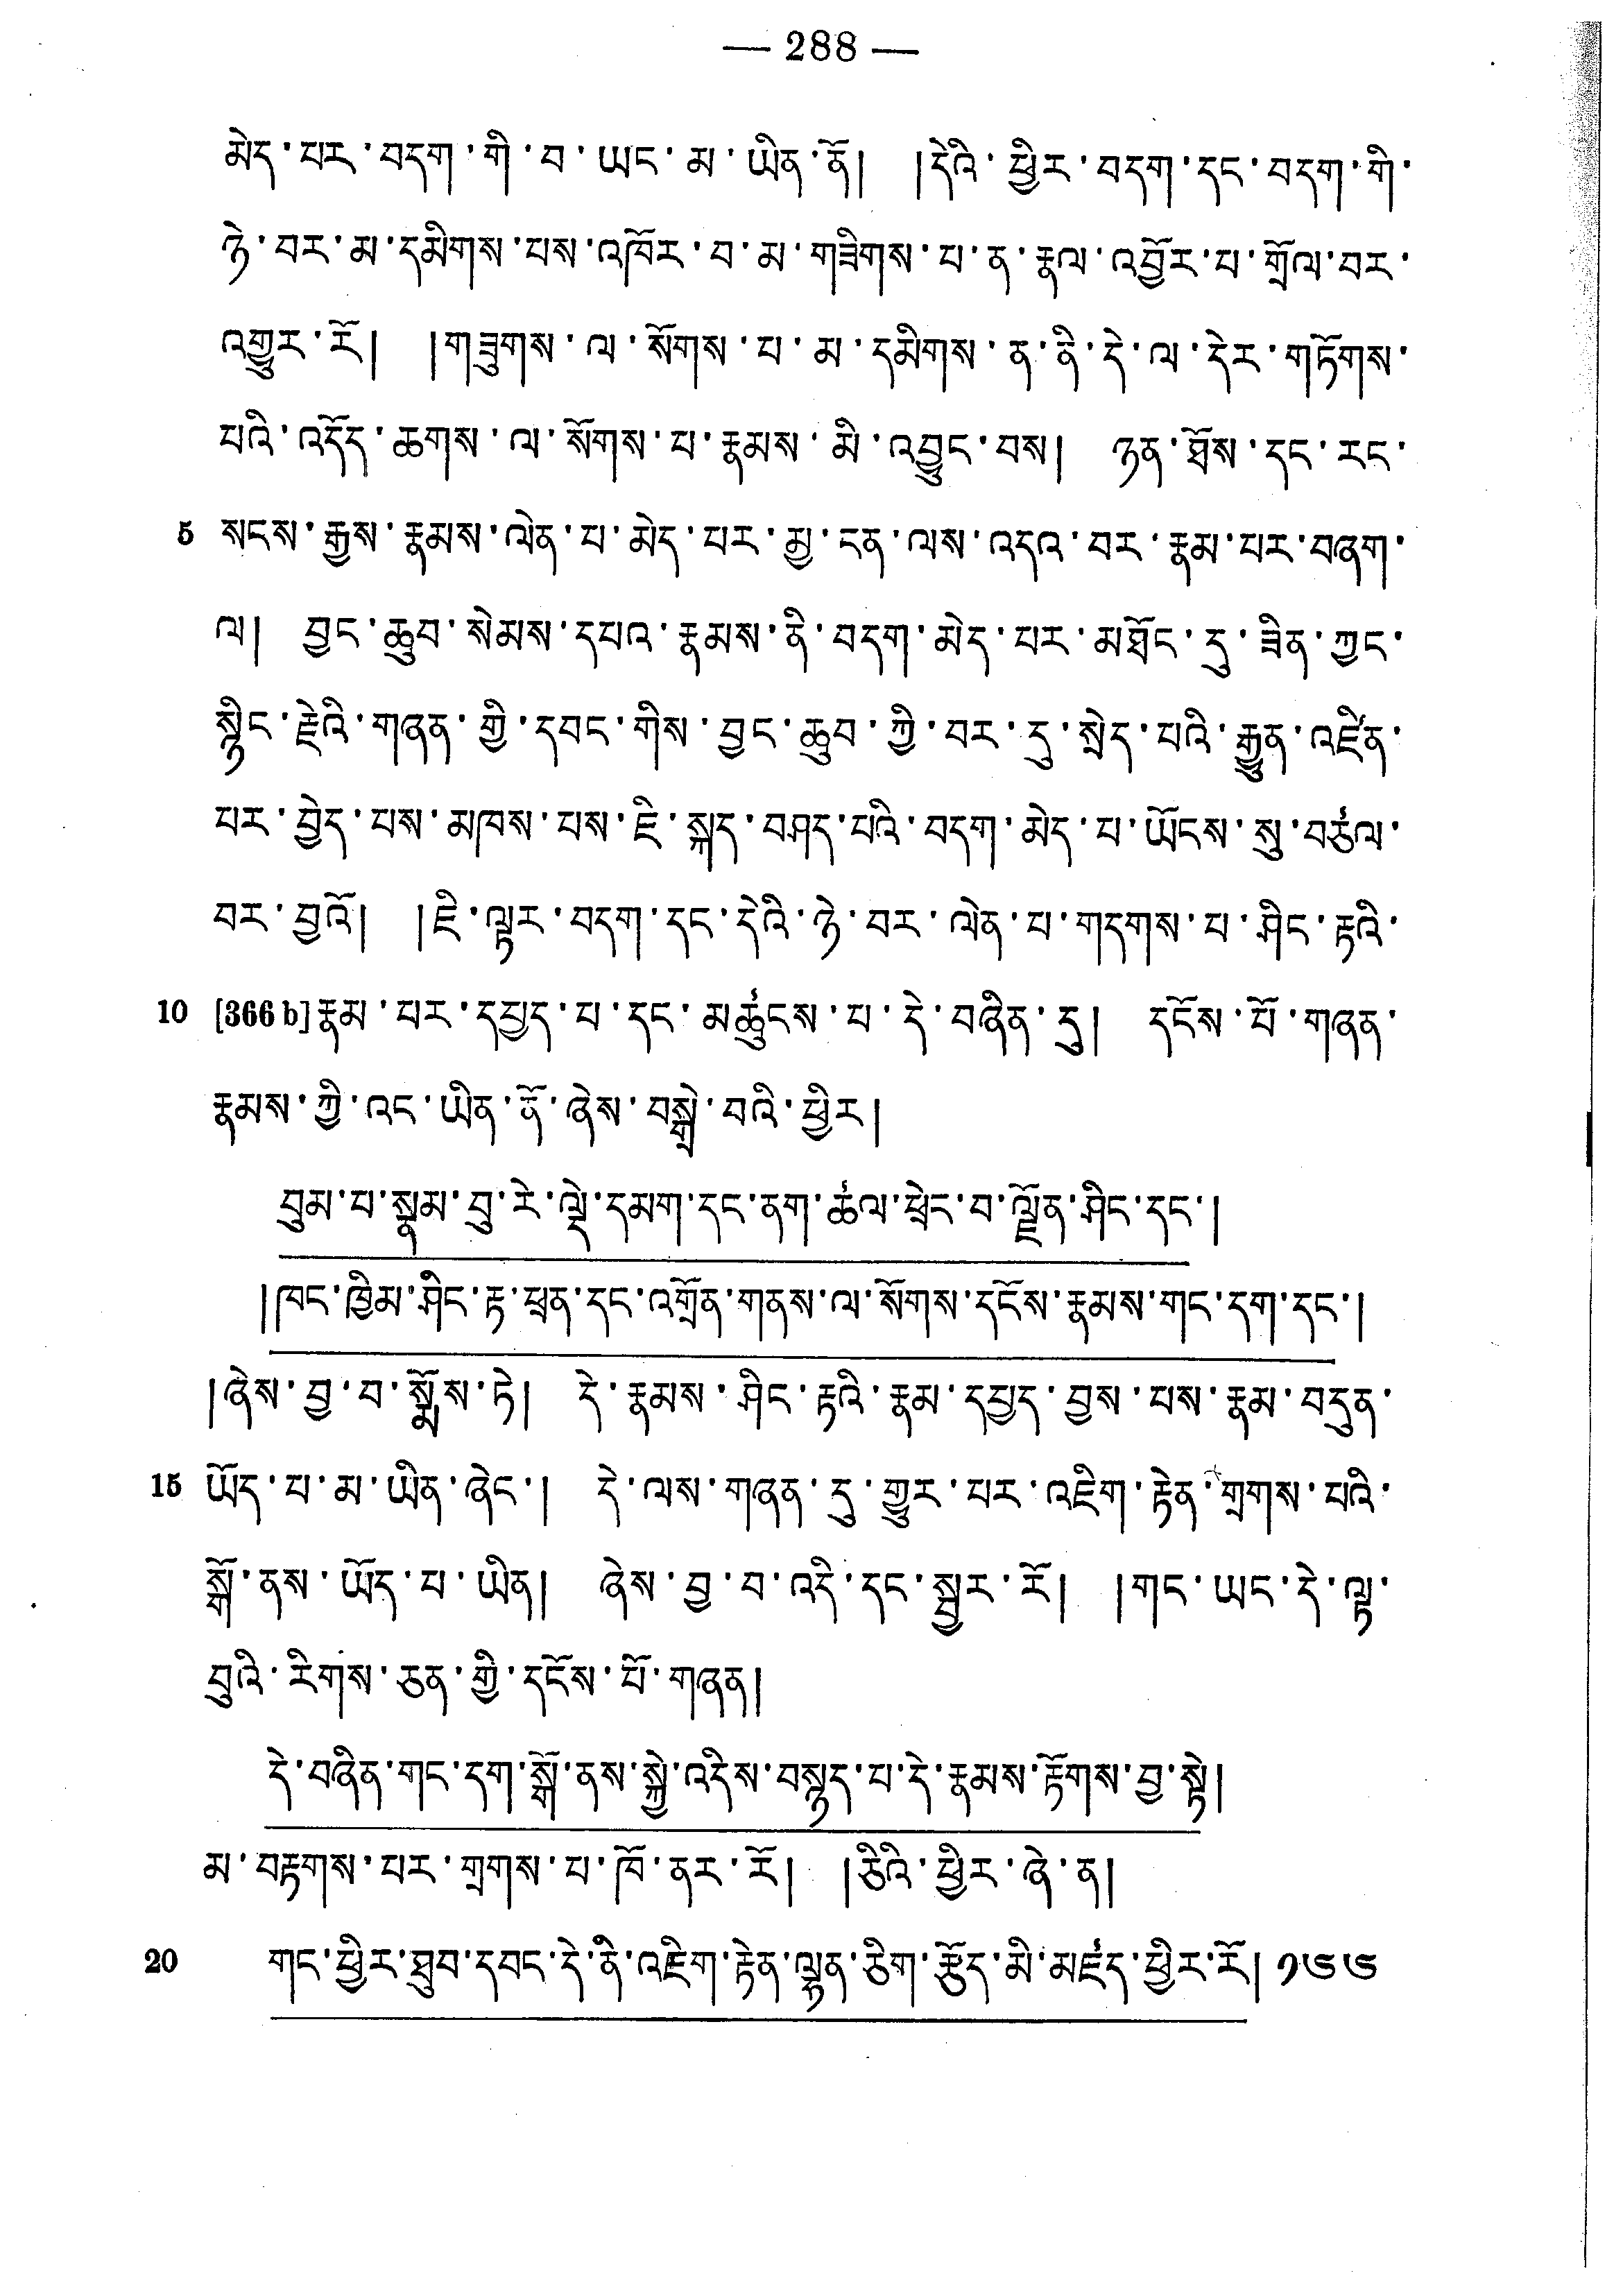 — 288 —
མེད་པར་བདག་གི་བ་ཡང་མ་ཡིན་ནོ། །དེའི་ཕྱིར་བདག་དང་བདག་གི་
ཉེ་བར་མ་དམིགས་པས་འཁོར་བ་མ་གཟིགས་པ་ན་རྣལ་འབྱོར་པ་གྲོལ་བར་
འགྱུར་རོ། །གཟུགས་ལ་སོགས་པ་མ་དམིགས་ན་ནི་དེ་ལ་དེར་གཏོགས་
པའི་འདོད་ཆགས་ལ་སོགས་པ་རྣམས་མི་འབྱུང་བས། ཉན་ཐོས་དང་རང་
5 སངས་རྒྱས་རྣམས་ལེན་པ་མེད་པར་མྱ་ངན་ལས་འདའ་བར་རྣམ་པར་བཞག་
ལ། བྱང་ཆུབ་སེམས་དཔའ་རྣམས་ནི་བདག་མེད་པར་མཐོང་དུ་ཟིན་ཀྱང་
སྙིང་རྗེའི་གཞན་གྱི་དབང་གིས་བྱང་ཆུབ་ཀྱི་བར་དུ་སྲེད་པའི་རྒྱུན་འཛིན་
པར་བྱེད་པས་མཁས་པས་ཇི་སྐད་བཤད་པའི་བདག་མེད་པ་ཡོངས་སུ་བཙལ་
བར་བྱའོ། །ཇི་ལྟར་བདག་དང་དེའི་ཉེ་བར་ལེན་པ་གདགས་པ་ཤིང་རྟའི་
10 [366 b]རྣམ་པར་དཔྱད་པ་དང་མཚུངས་པ་དེ་བཞིན་དུ། དངོས་པོ་གཞན་
རྣམས་ཀྱི་འང་ཡིན་ནོ་ཞེས་བསྒྲེ་བའི་ཕྱིར།
བུམ་པ་སྣམ་བུ་རེ་ལྡེ་དམག་དང་ནག་ཚལ་ཕྲེང་བ་ལྗོན་ཤིང་དང་།
།ཁང་ཁྱིམ་ཤིང་རྟ་ཕྲན་དང་འགྲོན་གནས་ལ་སོགས་དངོས་རྣམས་གང་དག་དང་།
།ཞེས་བྱ་བ་སྨོས་ཏེ། དེ་རྣམས་ཤིང་རྟའི་རྣམ་དཔྱད་བྱས་པས་རྣམ་བདུན་
15 ཡོད་པ་མ་ཡིན་ཞེང་། དེ་ལས་གཞན་དུ་གྱུར་པར་འཇིག་རྟེན་གྲགས་པའི་
སྒོ་ནས་ཡོད་པ་ཡིན། ཞེས་བྱ་བ་འདི་དང་སྦྱར་རོ། །གང་ཡང་དེ་ལྟ་
བུའི་རིགས་ཅན་གྱི་དངོས་པོ་གཞན།
དེ་བཞིན་གང་དག་སྒོ་ནས་སྐྱེ་འདིས་བསྙད་པ་དེ་རྣམས་རྟོགས་བྱ་སྟེ།
མ་བརྟགས་པར་གྲགས་པ་ཁོ་ནར་རོ། །ཅིའི་ཕྱིར་ཞེ་ན།
20 གང་ཕྱིར་ཐུབ་དབང་དེ་ནི་འཇིག་རྟེན་ལྷན་ཅིག་རྩོད་མི་མཛད་ཕྱིར་རོ། ༡༦༦